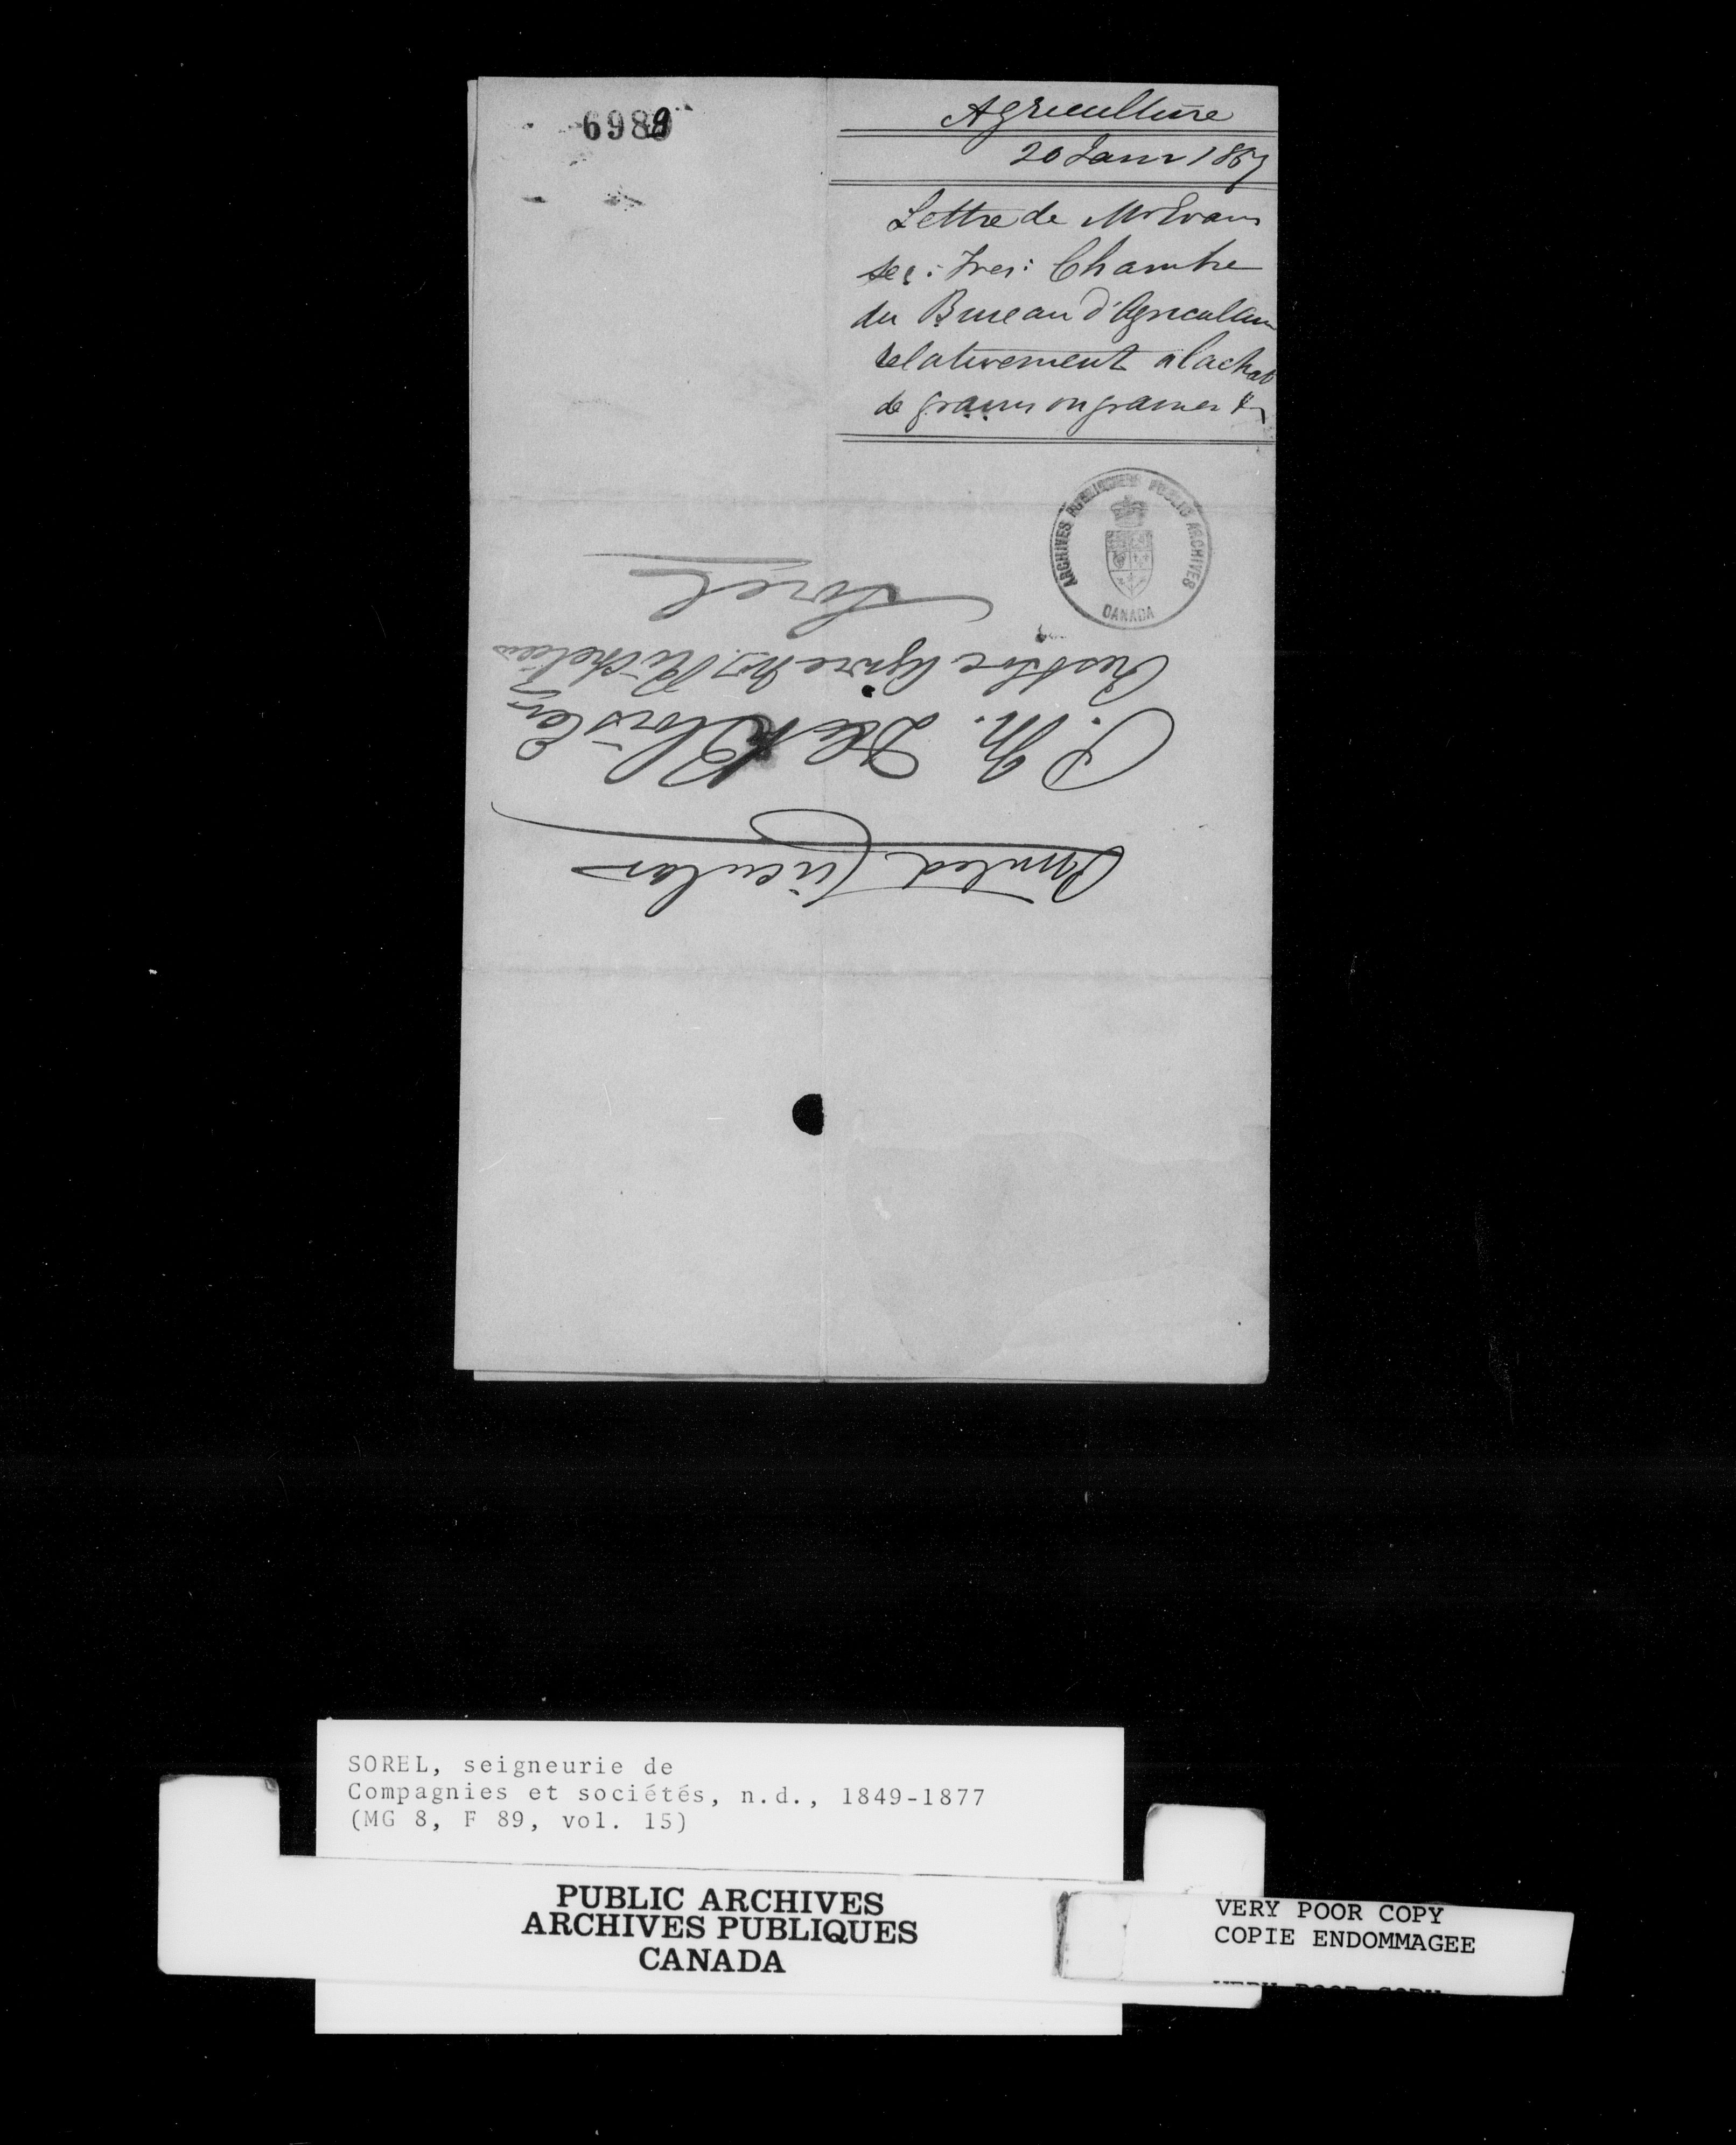 6989
Agriculture
20 Janv 1867
Lettre de Mr Evans
sec: Tres: Chambre
du Bureau d'Agriculture
relativement à l'achat
de grains ou graines &
ARCHIVES PUBLIQUES PUBLIC ARCHIVES
CANADA
Printed Circular
P. M. Esq
Presdt Soc Agric Richelieu
Sorel
SOREL, seigneurie de
Compagnies et sociétés, n.d., 1849-1877
(MG 8, F 89, vol. 15)
PUBLIC ARCHIVES
ARCHIVES PUBLIQUES
CANADA
VERY POOR COPY
COPIE ENDOMMAGEE
VERY POOR COPY